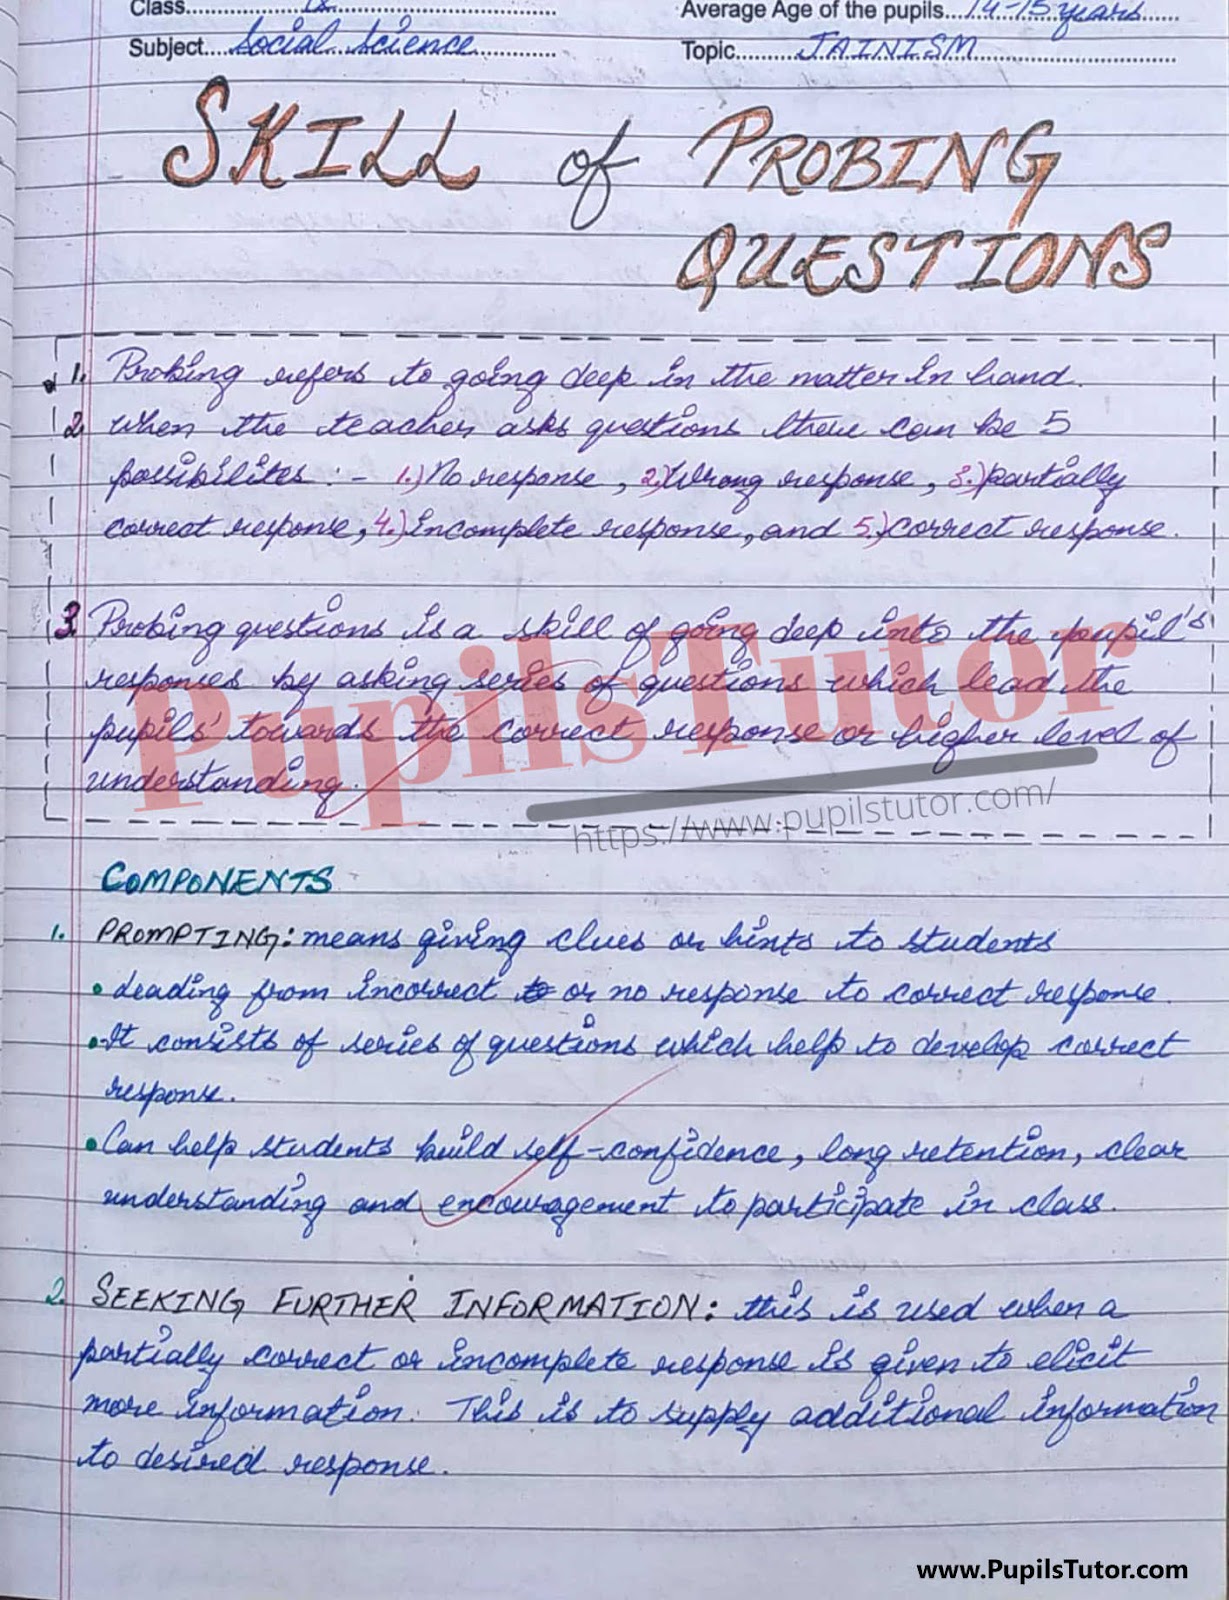 Class IX Average Age of the pupils 14-15 years
Subject Social Science Topic JAINISM
SKILL of PROBING
QUESTIONS
1. Probing refers to going deep in the matter in hand.
2. When the teacher asks questions there can be 5
possibilites :- 1.) No response, 2.) Wrong response, 3.) partially
correct response, 4.) incomplete response, and 5.) correct response.
3. Probing questions is a skill of going deep into the pupil's
responses by asking series of questions which lead the
pupils' towards the correct response or higher level of
understanding.
PupilsTutor
https://www.pupilstutor.com/
COMPONENTS
1. PROMPTING: means giving clues or hints to students
• Leading from incorrect or no response to correct response.
• It consists of series of questions which help to develop correct
response.
• Can help students build self-confidence, long retention, clear
understanding and encouragement to participate in class.
2. SEEKING FURTHER INFORMATION: this is used when a
partially correct or incomplete response is given to elicit
more information. This is to supply additional information
to desired response.
www.PupilsTutor.com